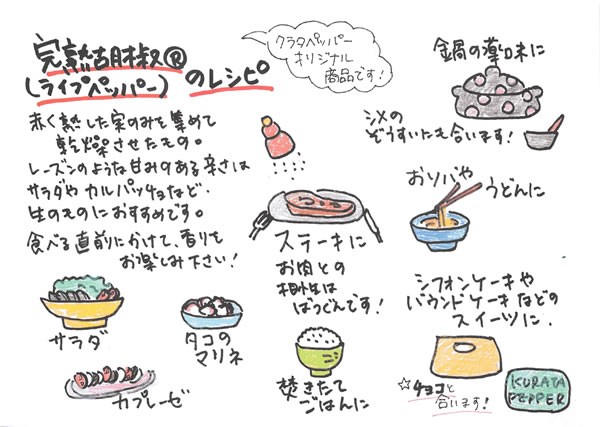 完熟胡椒®
(ライプペッパー)
のレシピ
クラタペッパー
オリジナル
商品です!
赤く熟した実のみを集めて
乾燥させたもの。
レーズンのような甘みのある辛さは
サラダやカルパッチョなど、
生のものにおすすめです。
食べる直前にかけて、香りを
お楽しみ下さい!
サラダ
タコの
マリネ
カプレーゼ
ステーキに
お肉との
相性は
ばつぐんです!
炊きたて
ごはんに
鍋の薬味に
シメの
ぞうすいにも合います!
おソバや
うどんに
シフォンケーキや
パウンドケーキなどの
スイーツに。
☆チョコと
合います!
KURATA
PEPPER